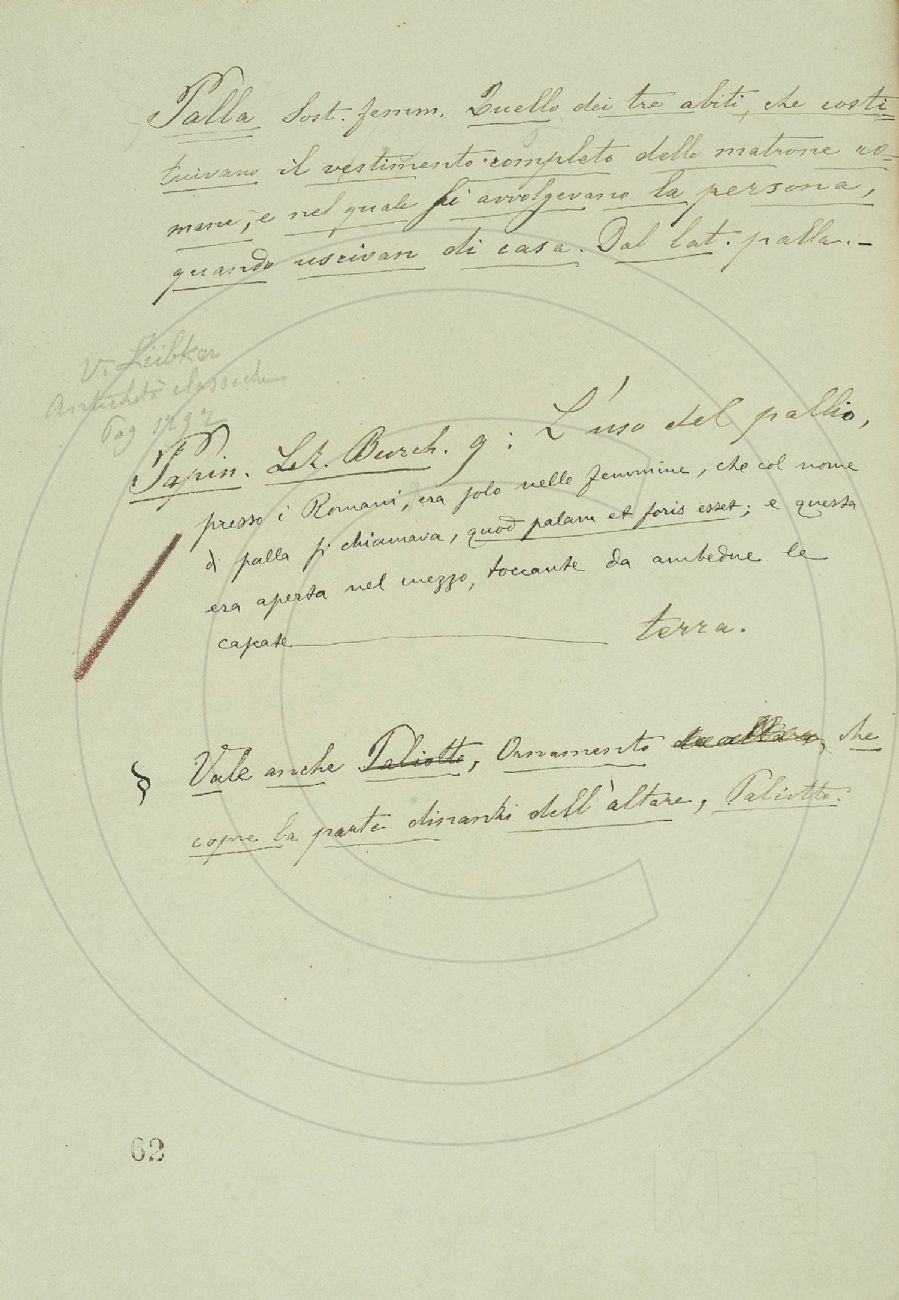 Palla Sost. femm. Quello dei tre abiti, che costi-
tuivano il vestimento completo delle matrone ro-
mane, e nel quale si avvolgevano la persona,
quando uscivan di casa. Dal lat. palla. –
V. Lübker
Antichità classiche
Pag
Papin. Let. Burch. 9: L'uso del pallio,
presso i Romani, era solo nelle femmine, che col nome
di palla si chiamava, quod palam et foris esset; e questa
era aperta nel mezzo, toccante da ambedue le
capate terra.
§ Vale anche Paliotto, Ornamento che
copre la parte dinanzi dell'altare, Paliotto.
62